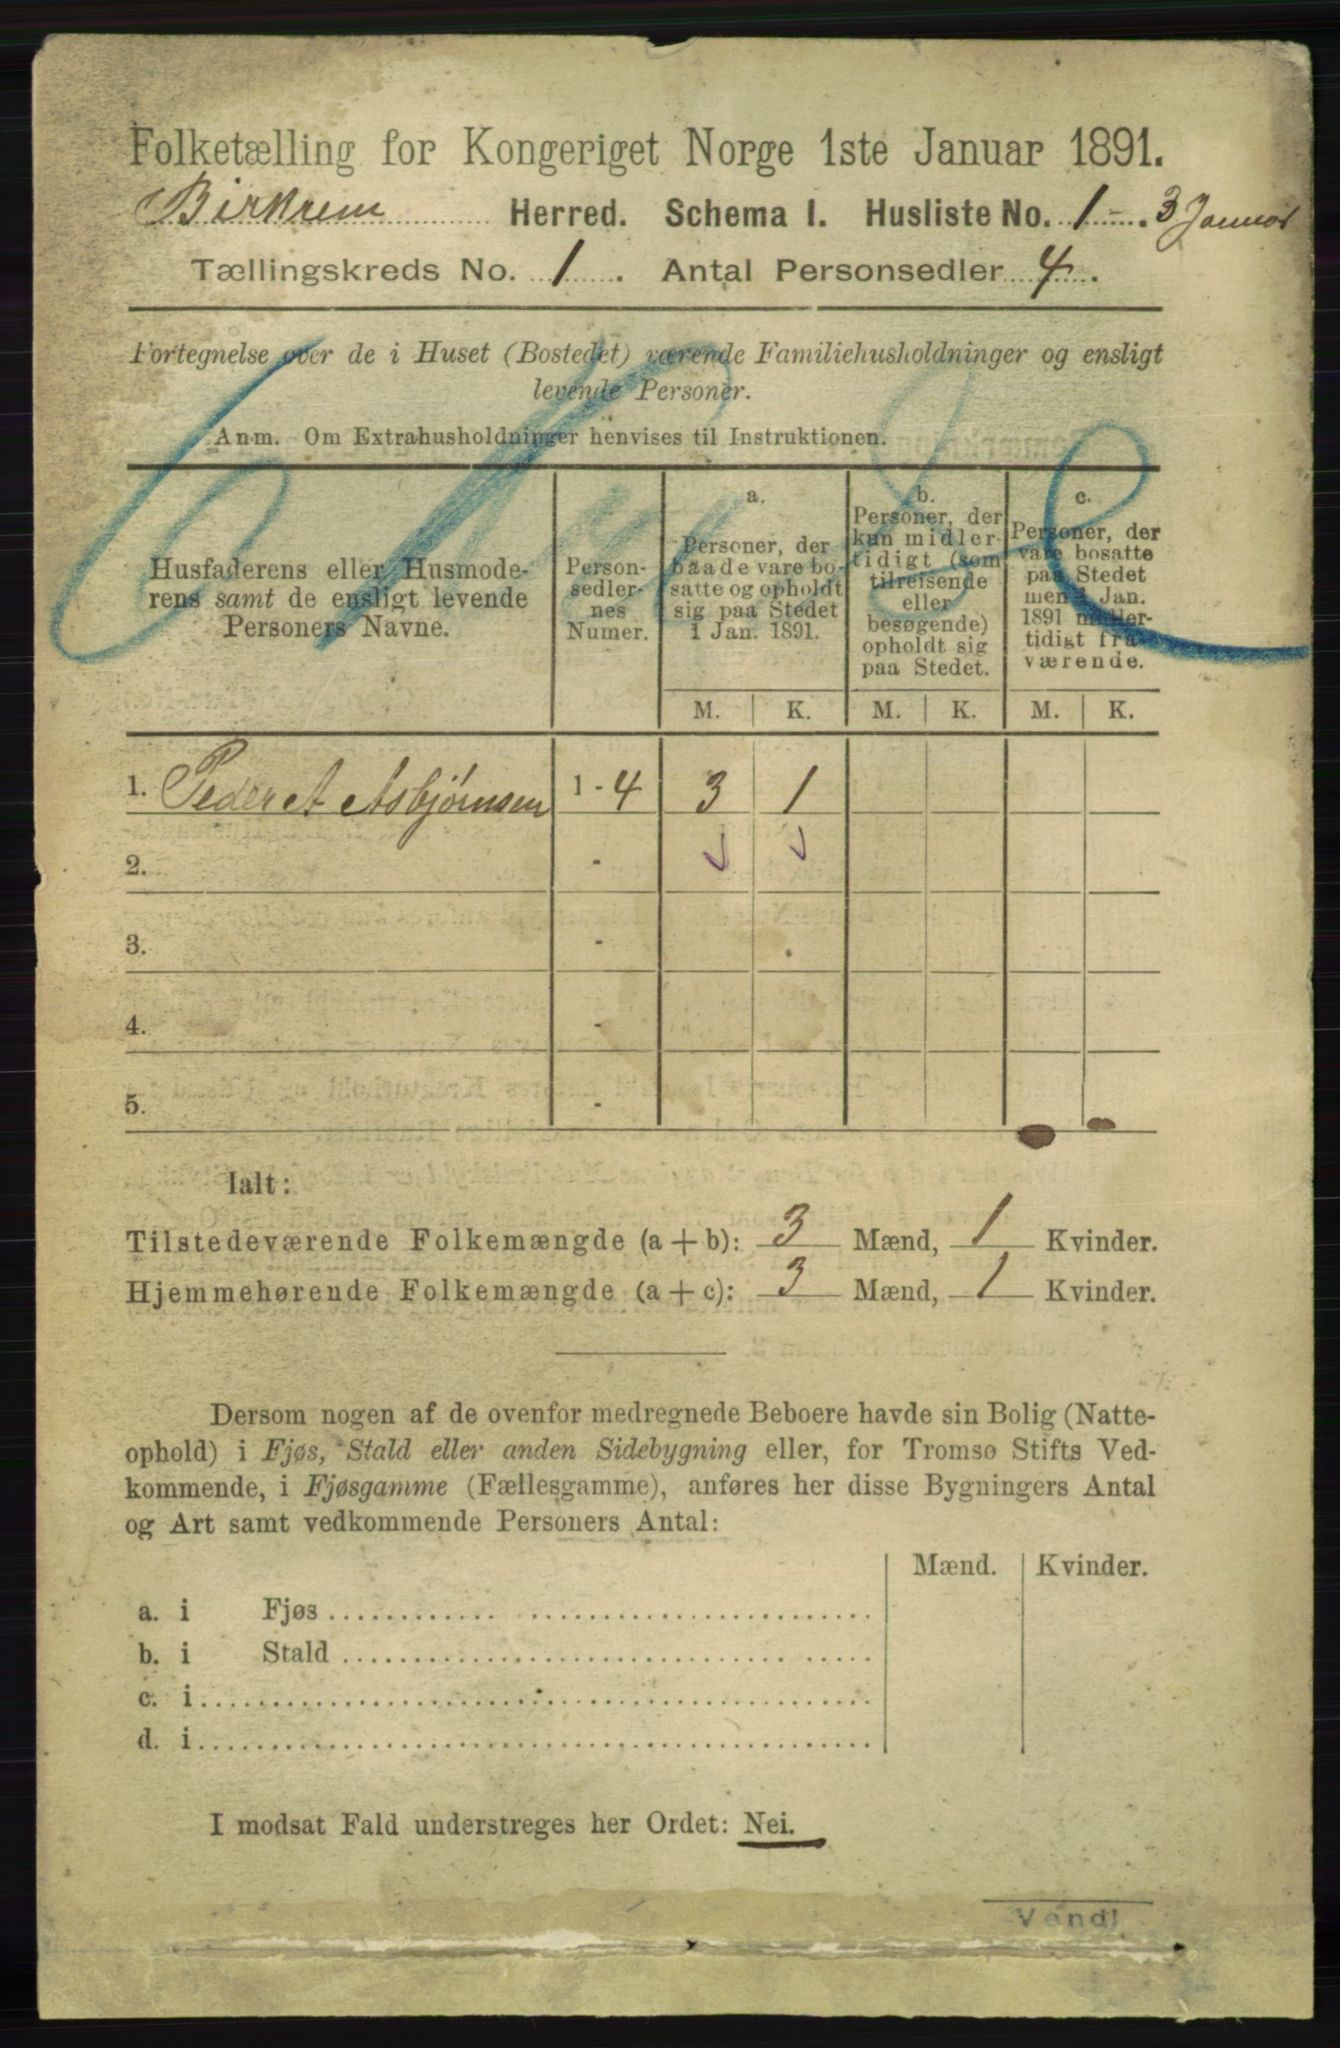 Folketælling for Kongeriget Norge 1ste Januar 1891.
Birkrem Herred. Schema I. Husliste No. 1 - . 3 Januar
Tællingskreds No. 1 . Antal Personsedler 4 .
Fortegnelse over de i Huset (Bostedet) værende Familiehusholdninger og ensligt
levende Personer.
Anm. Om Extrahusholdninger henvises til Instruktionen.
Husfaderens eller Husmode-
rens samt de ensligt levende
Personers Navne.
Person-
sedler-
nes
Numer.
a.
Personer, der
baade vare bo-
satte og opholdt
sig paa Stedet
1 Jan. 1891.
b.
Personer, der
kun midler-
tidigt (som
tilreisende
eller
besøgende)
opholdt sig
paa Stedet.
c.
Personer, der
vare bosatte
paa Stedet
men 1 Jan.
1891 midler-
tidigt fra-
værende.
M. K. M. K. M. K.
1. Peder A Asbjørnsen 1 - 4 3 1
2. -
3. -
4. -
5. -
Ialt:
Tilstedeværende Folkemængde (a + b): 3 Mænd, 1 Kvinder.
Hjemmehørende Folkemængde (a + c): 3 Mænd, 1 Kvinder.
Dersom nogen af de ovenfor medregnede Beboere havde sin Bolig (Natte-
ophold) i Fjøs, Stald eller anden Sidebygning eller, for Tromsø Stifts Ved-
kommende, i Fjøsgamme (Fællesgamme), anføres her disse Bygningers Antal
og Art samt vedkommende Personers Antal:
Mænd. Kvinder.
a. i Fjøs
b. i Stald
c. i
d. i
I modsat Fald understreges her Ordet: Nei.
Vend!